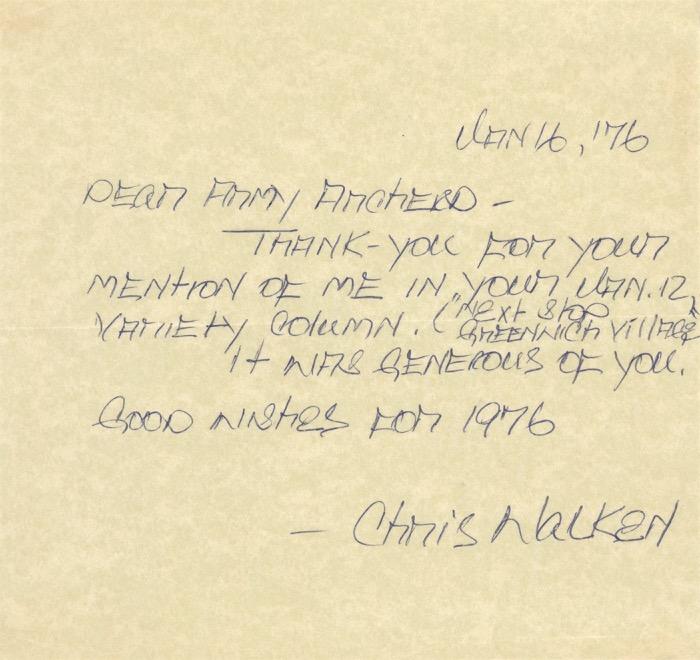 JAN 16, '76
DEAR ARMY ARCHERD —
THANK-YOU FOR YOUR
MENTION OF ME IN YOUR JAN. 12,
VARIETY COLUMN. ("NEXT STOP
GREENWICH VILLAGE
IT WAS GENEROUS OF YOU.
GOOD WISHES FOR 1976
— CHRIS WALKEN